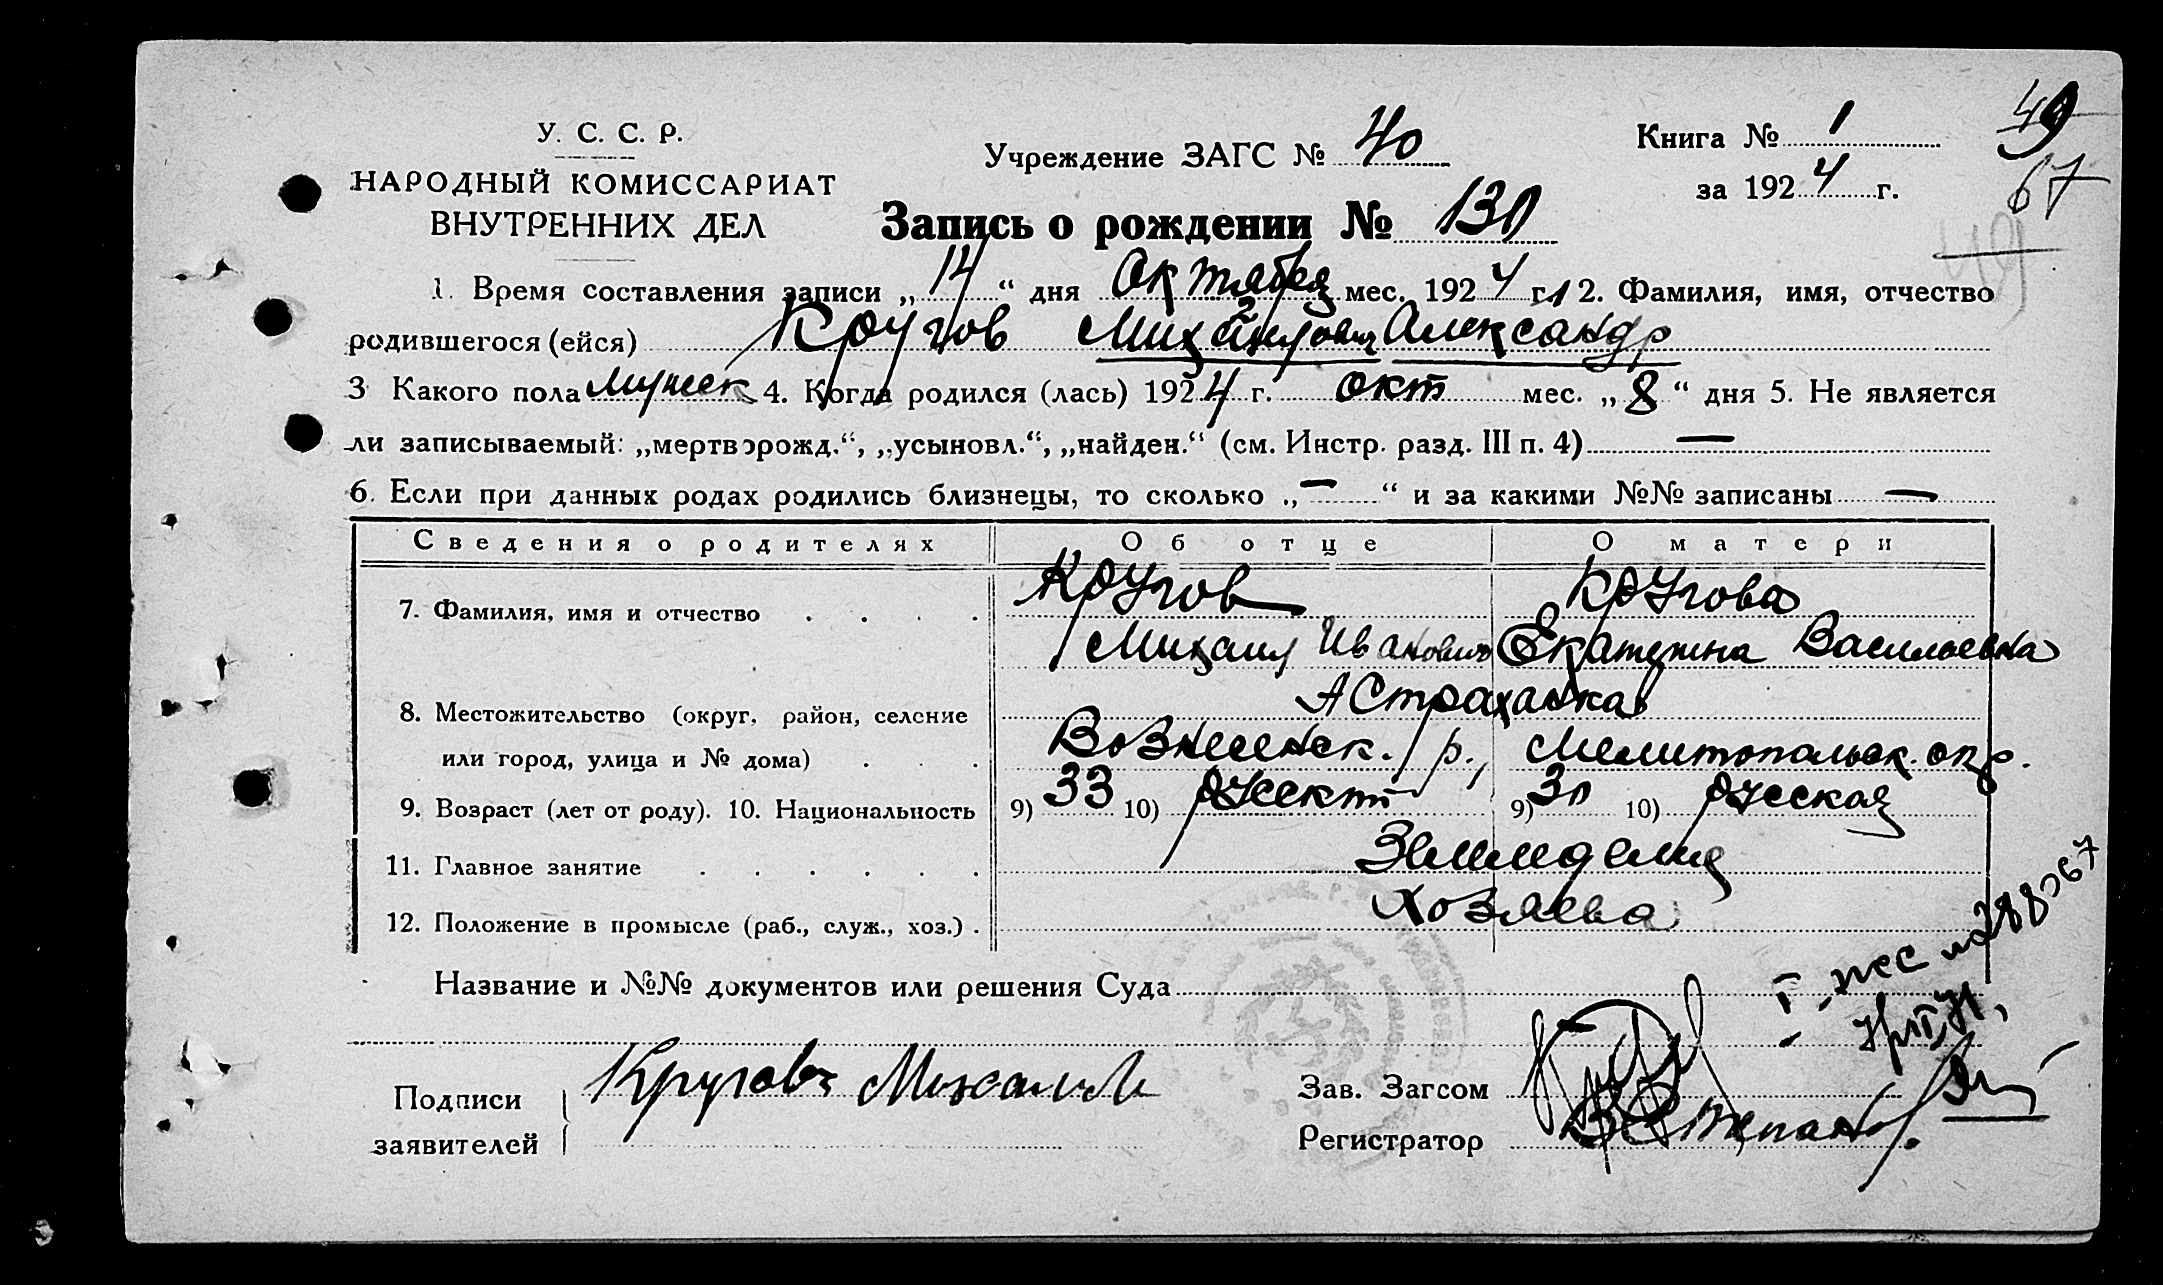 49
У. С. С. Р.
Учреждение ЗАГС № 40
Книга № 1
НАРОДНЫЙ КОМИССАРИАТ
за 1924 г.
67
ВНУТРЕННИХ ДЕЛ
Запись о рождении № 130
49
1. Время составления записи „14“ дня Октября мес. 1924 г. 2. Фамилия, имя, отчество
родившегося (ейся) Кругов Михайлович Александр
3 Какого пола мужск 4. Когда родился (лась) 1924 г. окт мес. „8“ дня 5. Не является
ли записываемый: „мертворожд.“, „усыновл.“, „найден.“ (см. Инстр. разд. III п. 4) —
6. Если при данных родах родились близнецы, то сколько „—“ и за какими №№ записаны —
Сведения о родителях Об отце О матери
7. Фамилия, имя и отчество Кругов Кругова
Михаил Иванович Екатерина Васильевна
8. Местожительство (округ, район, селение Астраханка
или город, улица и № дома) Вознесенск. р., Мелитопольск. окр.
9. Возраст (лет от роду). 10. Национальность 9) 33 10) 9) 30 10) русская
11. Главное занятие Земледелия
12. Положение в промысле (раб., служ., хоз.) Хозяева
288067
Название и №№ документов или решения Суда
Подписи Кругов Михаил Зав. Загсом
заявителей Регистратор